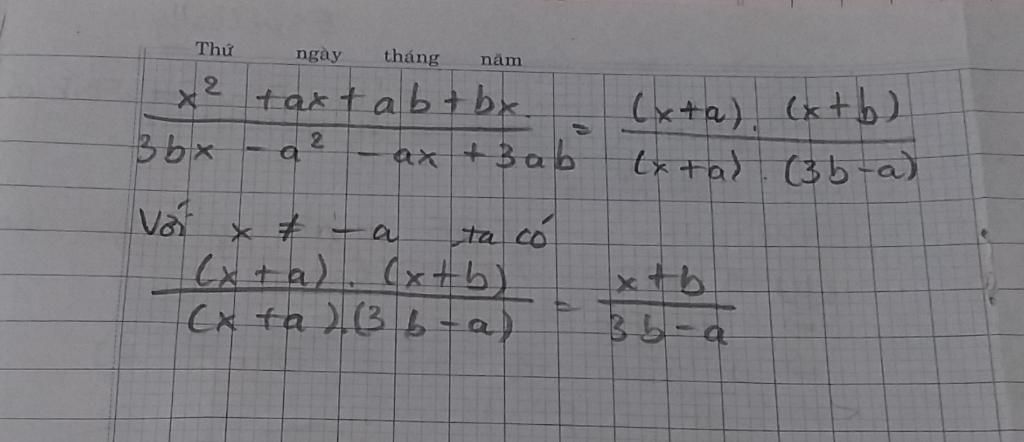 Thứ ngày tháng năm
x² + ax + ab + bx / 3bx - a² - ax + 3ab = (x+a) . (x+b) / (x+a) . (3b-a)
Với x ≠ -a ta có
(x+a) . (x+b) / (x+a).(3b-a) = x+b / 3b-a